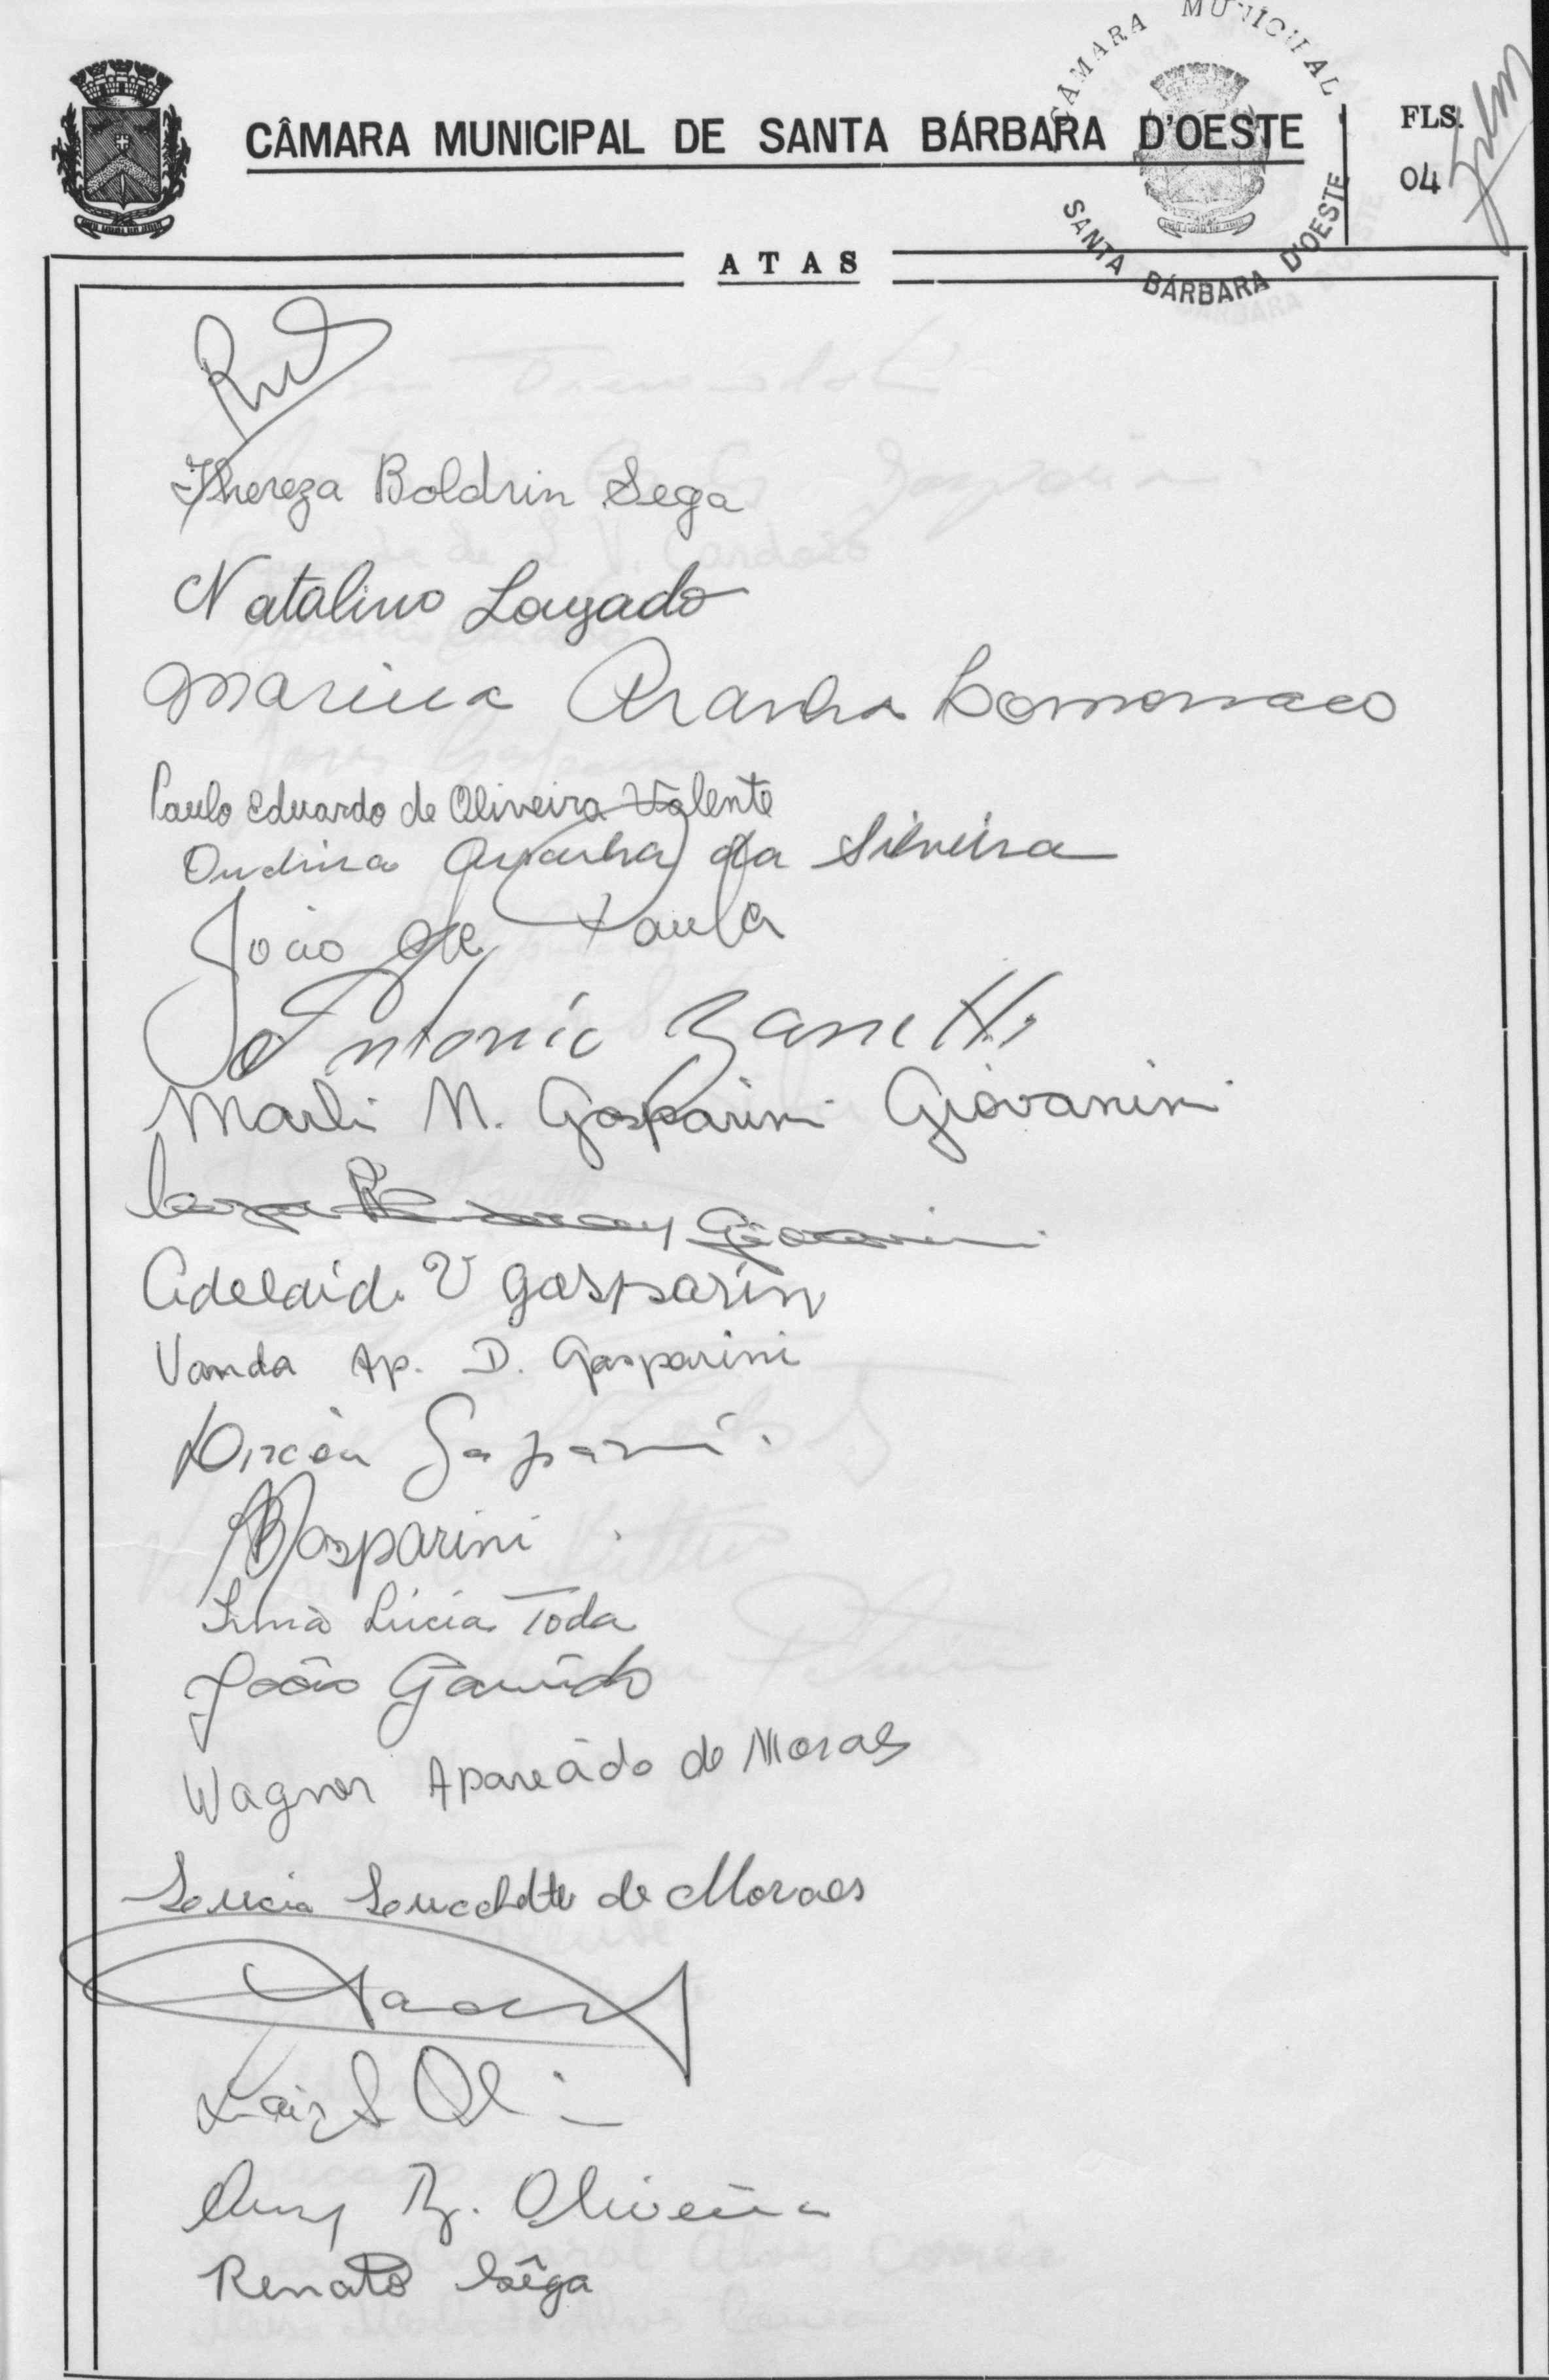 CÂMARA MUNICIPAL DE SANTA BÁRBARA D'OESTE
CÂMARA MUNICIPAL
SANTA BÁRBARA D'OESTE
FLS.
04
ATAS
Thereza Boldrin Sega
Natalino Layado
Marina Aranha Lomonaco
Paulo Eduardo de Oliveira Valente
Ondina Aranha da Silveira
João de Paula
Antonio Zanetti
Marli N. Gasparini Giovanini
Giovanini
Adelaide V Gasparin
Vanda Ap. D. Gasparini
Dircêu Gasparini
Gasparini
Irmã Lúcia Toda
João Garrido
Wagner Aparecido de Moraes
Lucia de Moraes
R. Oliveira
Renato Sêga